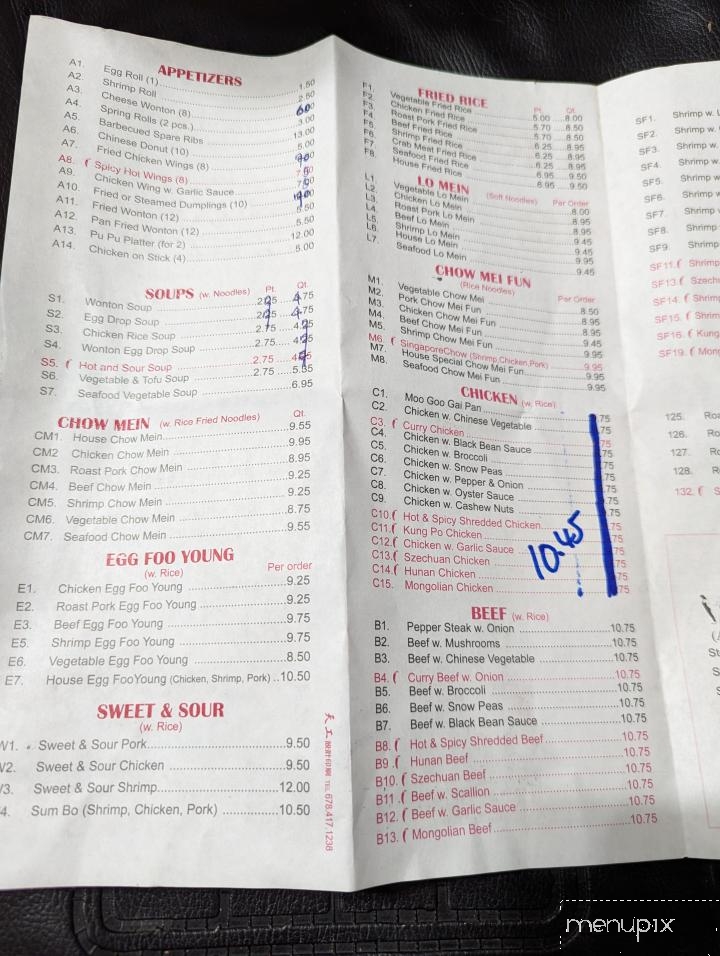 APPETIZERS
A1. Egg Roll (1) 1.50
A2. Shrimp Roll 2.50
A3. Cheese Wonton (8)
A4. Spring Rolls (2 pcs.) 3.00
A5. Barbecued Spare Ribs 13.00
A6. Chinese Donut (10) 5.00
A7. Fried Chicken Wings (8)
A8. Spicy Hot Wings (8)
A9. Chicken Wing w. Garlic Sauce
A10. Fried or Steamed Dumplings (10)
A11. Fried Wonton (12) 5.50
A12. Pan Fried Wonton (12) 5.50
A13. Pu Pu Platter (for 2) 12.00
A14. Chicken on Stick (4) 5.00
SOUPS (w. Noodles) Pt. Qt.
S1. Wonton Soup
S2. Egg Drop Soup
S3. Chicken Rice Soup 2.75
S4. Wonton Egg Drop Soup 2.75
S5. Hot and Sour Soup 2.75
S6. Vegetable & Tofu Soup 2.75
S7. Seafood Vegetable Soup 6.95
CHOW MEIN (w. Rice Fried Noodles) Qt.
CM1. House Chow Mein 9.55
CM2 Chicken Chow Mein 9.95
CM3. Roast Pork Chow Mein 8.95
CM4. Beef Chow Mein 9.25
CM5. Shrimp Chow Mein 9.25
CM6. Vegetable Chow Mein 8.75
CM7. Seafood Chow Mein 9.55
EGG FOO YOUNG
(w. Rice) Per order
E1. Chicken Egg Foo Young 9.25
E2. Roast Pork Egg Foo Young 9.25
E3. Beef Egg Foo Young 9.75
E5. Shrimp Egg Foo Young 9.75
E6. Vegetable Egg Foo Young 8.50
E7. House Egg FooYoung (Chicken, Shrimp, Pork) 10.50
SWEET & SOUR
(w. Rice)
W1. Sweet & Sour Pork 9.50
W2. Sweet & Sour Chicken 9.50
W3. Sweet & Sour Shrimp 12.00
4. Sum Bo (Shrimp, Chicken, Pork) 10.50
天工設計印刷 TEL 678.417.1238
FRIED RICE
Pt. Qt.
F1. Vegetable Fried Rice 5.00 8.00
F2. Chicken Fried Rice 5.70 8.50
F3. Roast Pork Fried Rice 5.70 8.50
F4. Beef Fried Rice 6.25 8.95
F5. Shrimp Fried Rice 6.25 8.95
F6. Crab Meat Fried Rice 6.25 8.95
F7. Seafood Fried Rice 6.95 9.50
F8. House Fried Rice 6.95 9.50
LO MEIN
(Soft Noodles) Per Order
L1. Vegetable Lo Mein 8.00
L2. Chicken Lo Mein 8.95
L3. Roast Pork Lo Mein 8.95
L4. Beef Lo Mein 9.45
L5. Shrimp Lo Mein 9.45
L6. House Lo Mein 9.95
L7. Seafood Lo Mein 9.45
CHOW MEI FUN
(Rice Noodles) Per Order
M1. Vegetable Chow Mei 8.50
M2. Pork Chow Mei Fun 8.95
M3. Chicken Chow Mei Fun 8.95
M4. Beef Chow Mei Fun 9.45
M5. Shrimp Chow Mei Fun 9.95
M6. SingaporeChow (Shrimp,Chicken,Pork) 9.95
M7. House Special Chow Mei Fun 9.95
M8. Seafood Chow Mei Fun 9.95
CHICKEN (w. Rice)
C1. Moo Goo Gai Pan .75
C2. Chicken w. Chinese Vegetable .75
C3. Curry Chicken .75
C4. Chicken w. Black Bean Sauce .75
C5. Chicken w. Broccoli .75
C6. Chicken w. Snow Peas .75
C7. Chicken w. Pepper & Onion .75
C8. Chicken w. Oyster Sauce .75
C9. Chicken w. Cashew Nuts .75
C10. Hot & Spicy Shredded Chicken .75
C11. Kung Po Chicken .75
C12. Chicken w. Garlic Sauce .75
C13. Szechuan Chicken .75
C14. Hunan Chicken .75
C15. Mongolian Chicken .75
10.45
BEEF (w. Rice)
B1. Pepper Steak w. Onion 10.75
B2. Beef w. Mushrooms 10.75
B3. Beef w. Chinese Vegetable 10.75
B4. Curry Beef w. Onion 10.75
B5. Beef w. Broccoli 10.75
B6. Beef w. Snow Peas 10.75
B7. Beef w. Black Bean Sauce 10.75
B8. Hot & Spicy Shredded Beef 10.75
B9. Hunan Beef 10.75
B10. Szechuan Beef 10.75
B11. Beef w. Scallion 10.75
B12. Beef w. Garlic Sauce 10.75
B13. Mongolian Beef 10.75
SF1. Shrimp w. L
SF2. Shrimp w.
SF3. Shrimp w.
SF4. Shrimp w.
SF5. Shrimp w.
SF6. Shrimp w.
SF7. Shrimp w.
SF8. Shrimp
SF9. Shrimp
SF11. Shrimp
SF13. Szechu
SF14. Shrim
SF15. Shrim
SF16. Kung
SF19. Mong
125. Roa
126. Ro
127. Ro
128. Ro
132. S
menupix